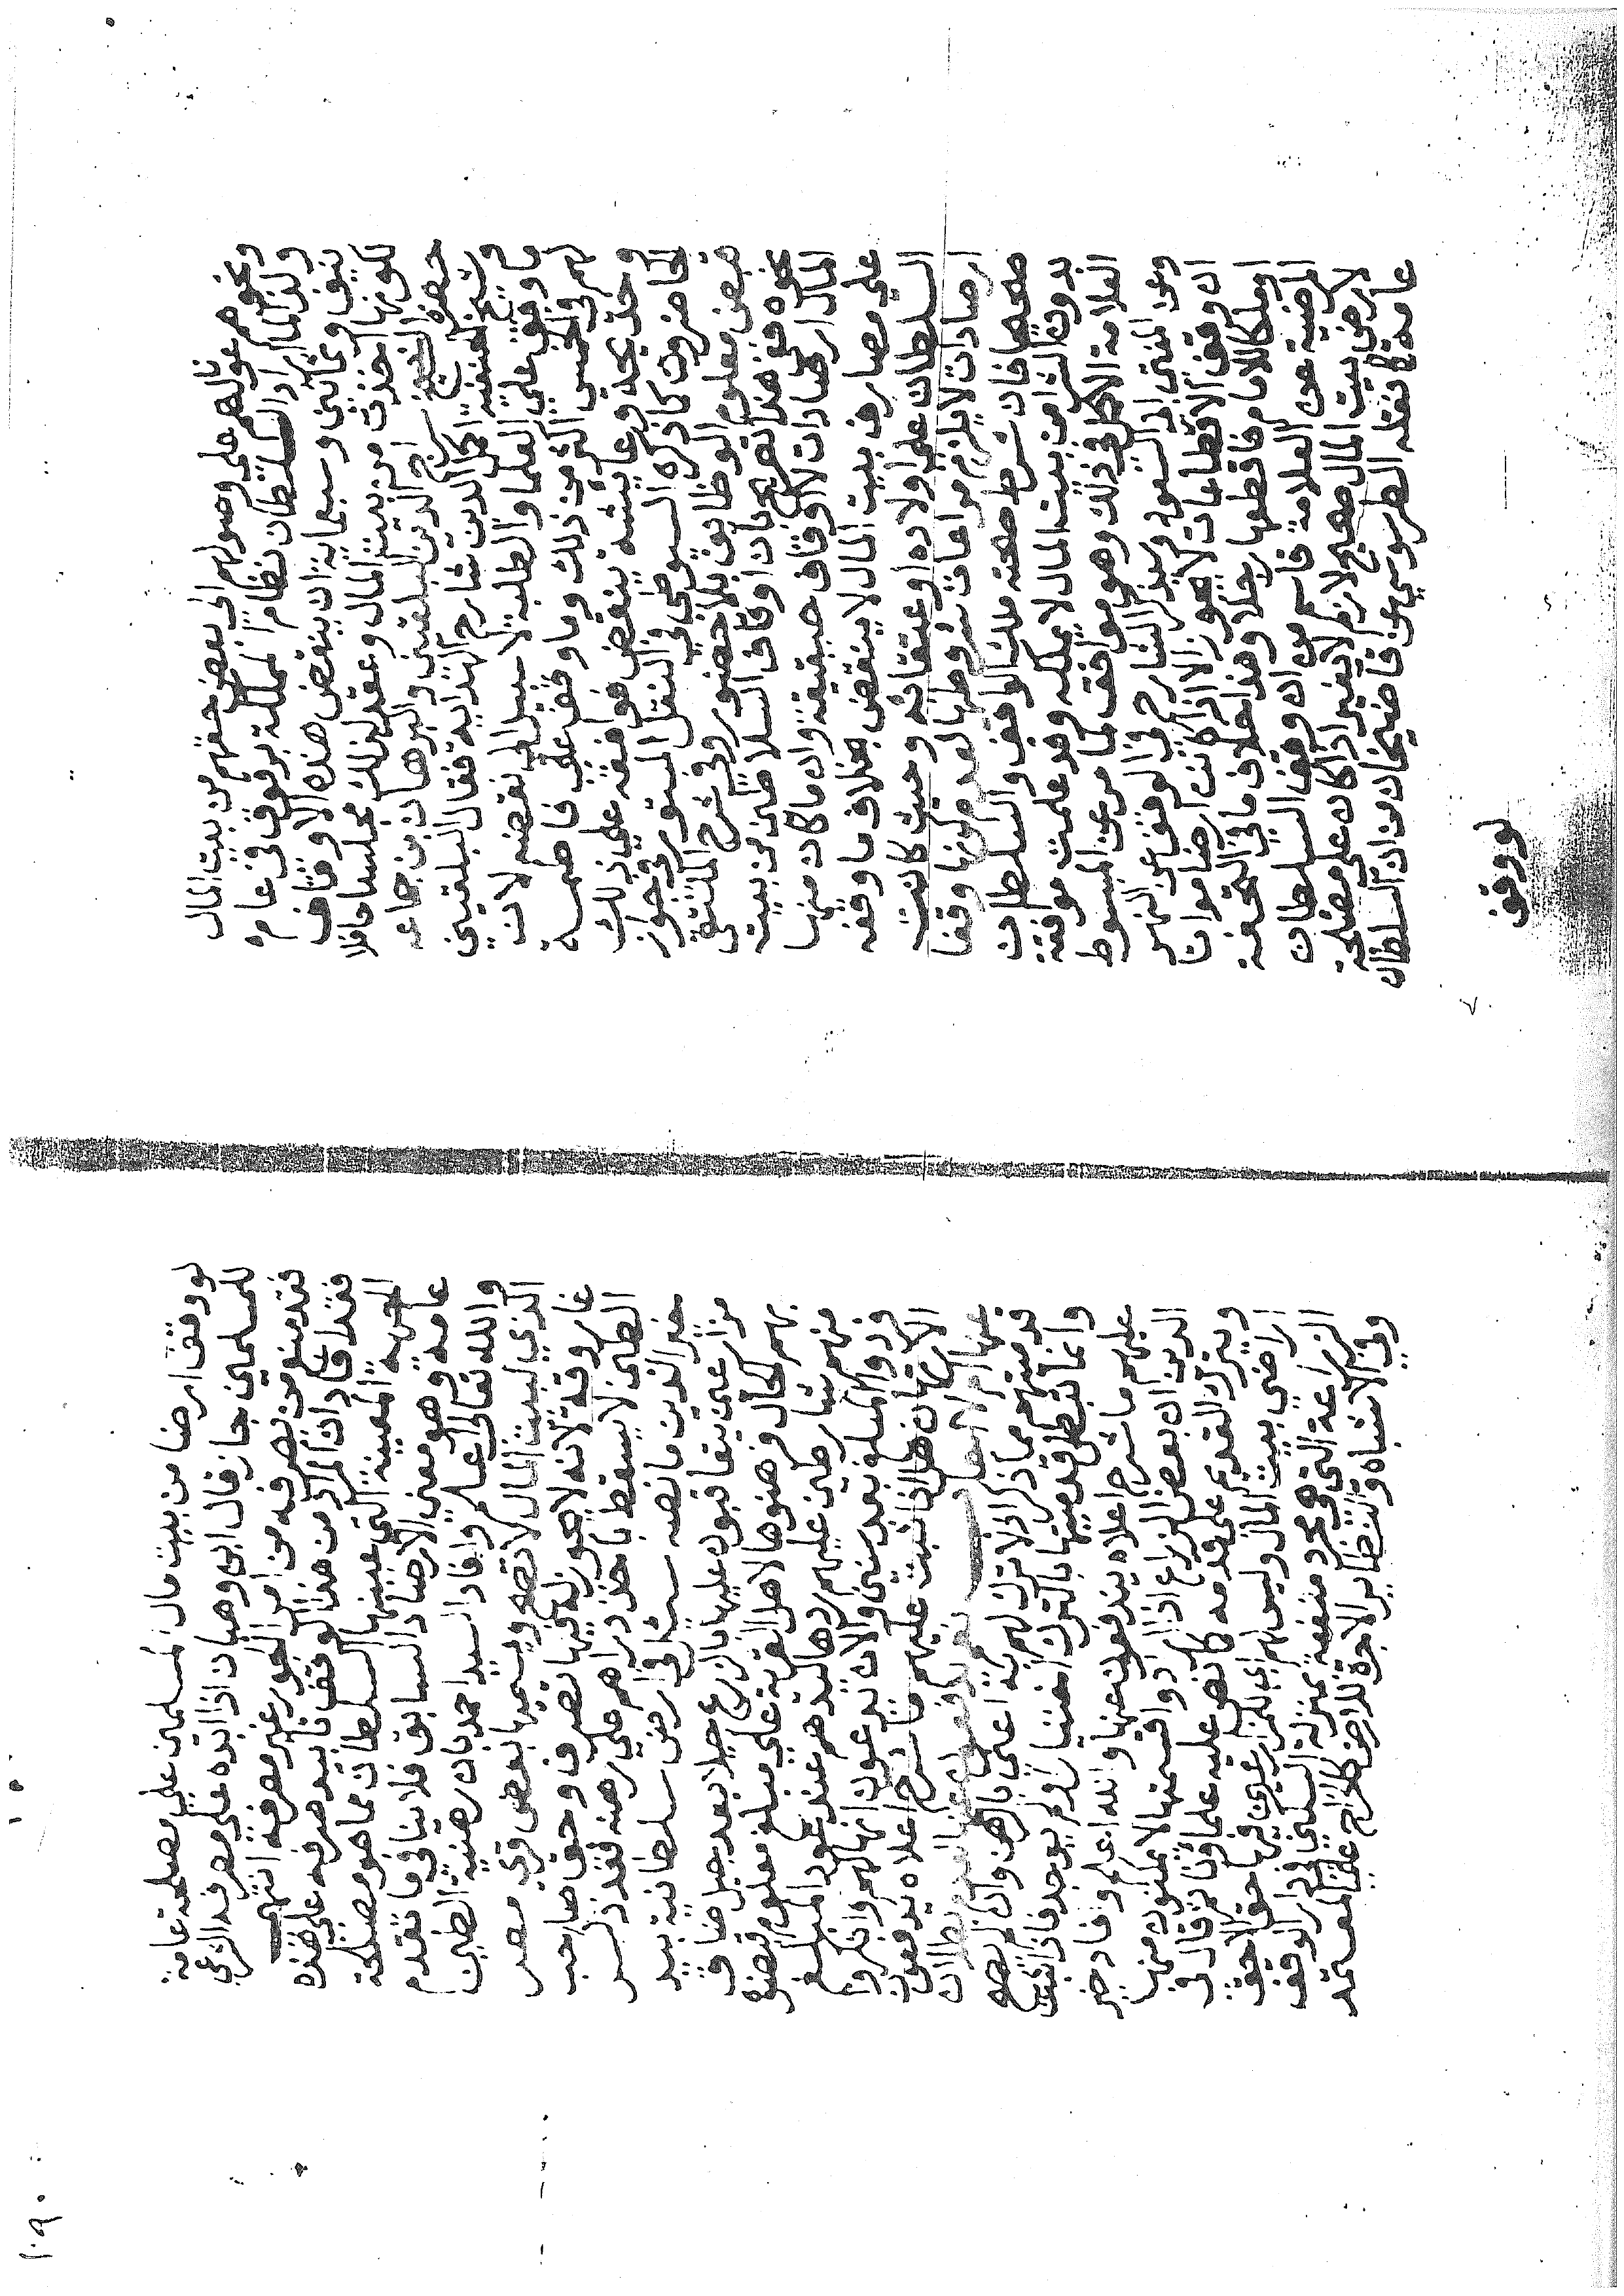 ونحوهم عونا لهم على وصولهم الى بعض حقهم من بيت المال
ولذا لما اراد السلطان نظام المملكة برقوق في عام
نيف وثمانين وسبعماية ان ينقض هذه الاوقاف
لكونها اخذت من بيت المال وعقد لذلك مجلسا حافلا
حضره الشيخ سراج الدين البلقيني والبرهان بن جماعه
وشيخ الحنفية اكمل الدين شارح الهداية فقال البلقيني
ما وقف على العلما والطلبة لا سبيل الى نقضه لان
لهم في الخمس اكثر من ذلك وما وقف على فاطمة
وخديجة وعايشة ينقض فوافقه على ذلك
الحاضرون كما ذكره السيوطي في النقل المستور في جواز
قبض معلوم الوظايف بلا حضور وفي شرح الملتقى
نحوه ففي هذا تصريح بان اوقاف السلاطين من بيت
المال ارصادات لا اوقاف حقيقية وان ما كان منها
على مصارف بيت المال لا ينقض بخلاف ما وقفه
السلطان على اولاده او عتقائه وحيث كانت
ارصادات لا يلزم مراعات شروطها لعدم كونها وقفا
صحيحا فان شرط صحته ملك الواقف والسلطان
بدون الشرا من بيت المال لا يملكه وقد علمت موافقة
العلامة الاكمل في ذلك وهو موافق لما مر عن المبسوط
وعن المفتي ابو السعود وسيذكر الشارح في الوقف عن النهر
ان وقف الاقطاعات لا يجوز الا اذا كانت ارضا مواتا
او ملكا للامام فاقطعها رجلا وهذا خلاف ما في التحفة
المرضية عن العلامة قاسم من ان وقف السلطان
لارض بيت المال صحيح لازم لا يغير اذا كان على مصلحة
عامة كما نقله الطرسوسي عن قاضيخان من ان السلطان
لو وقف
لو وقف ارضا من بيت مال المسلمين على مصلحة عامة
للمسلمين جاز قال ابن وهبان اذا ابده على مصرفه الشرعي
فقد منع من يصرفه من امراء الجور غير مصرفه انتهى
فقد افاد ان المراد من هذا الوقف تابيد صرفه على هذه
الجهة المعينة التي عينها السلطان مما هو مصلحة
عامة وهو معنى الارصاد السابق فلا ينافي ما تقدم
والله تعالى اعلم وافاد السيد احمد بان رهنية الطين
الذي لبيت المال لا تصح ويسميها بعض قرى مصر
غاروقة لانه لا يجوز له فيها تصرف وحق صاحب
الطين لا يسقط باخذ دراهم على رهنه فقد ذكر
خير الدين ما نصه سئل في ارض سلطانية بيد
مزارعين يتعاقبون عليها بالزرع جيلا بعد جيل ضاق
بهم الحال فرهنوها لاهل القرية على مبلغ معلوم قبضوه
منهم شارطين عليهم ردها ليدهم عند عود المبلغ
فردوا المبلغ بعد سنين والان يدعون انها لهم وانكروا
الارتهان هل اذا ثبت عليهم ما شرح اعلاه يدفعون
عنها ام لا اجاب نعم يدفعون عنها لعدم بطلان
قدميتهم مما ذكر اذ لا ترك لهم به اعني بالرهن وان لم يصح
وانما تبطل قدميتها بالترك اختيارا ولم يوجد فاذا ثبت
عليهم ما شرح اعلاه يندفعون عنها والله اعلم وافاد خير
الدين ان بعض الزراع اذا ادوا قسمتها لا يملكون منها
وينزل القديم على قدمه كما نص عليه علماؤنا ثم قال في
اراضي بيت المال وليس لهم اي للمزارعين فيها حق الاحق
الزراعة التي هي مجرد منفعة بمنزلة السكنى في دار الوقف
وفي الاشباه والنظاير الاجرة للارض كالخراج على المعتمد